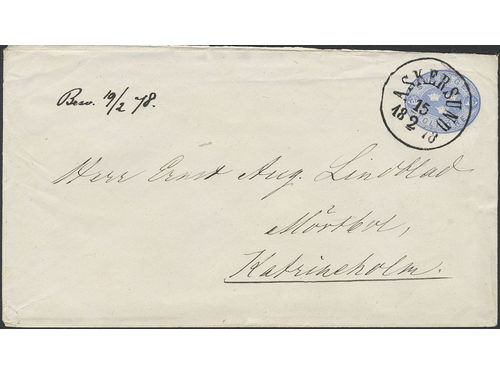 Besv. 19/2 78.
ASKERSUND
15
18 2 78
Herr Ernst Aug. Lindblad
Mörtbol,
Katrineholm.